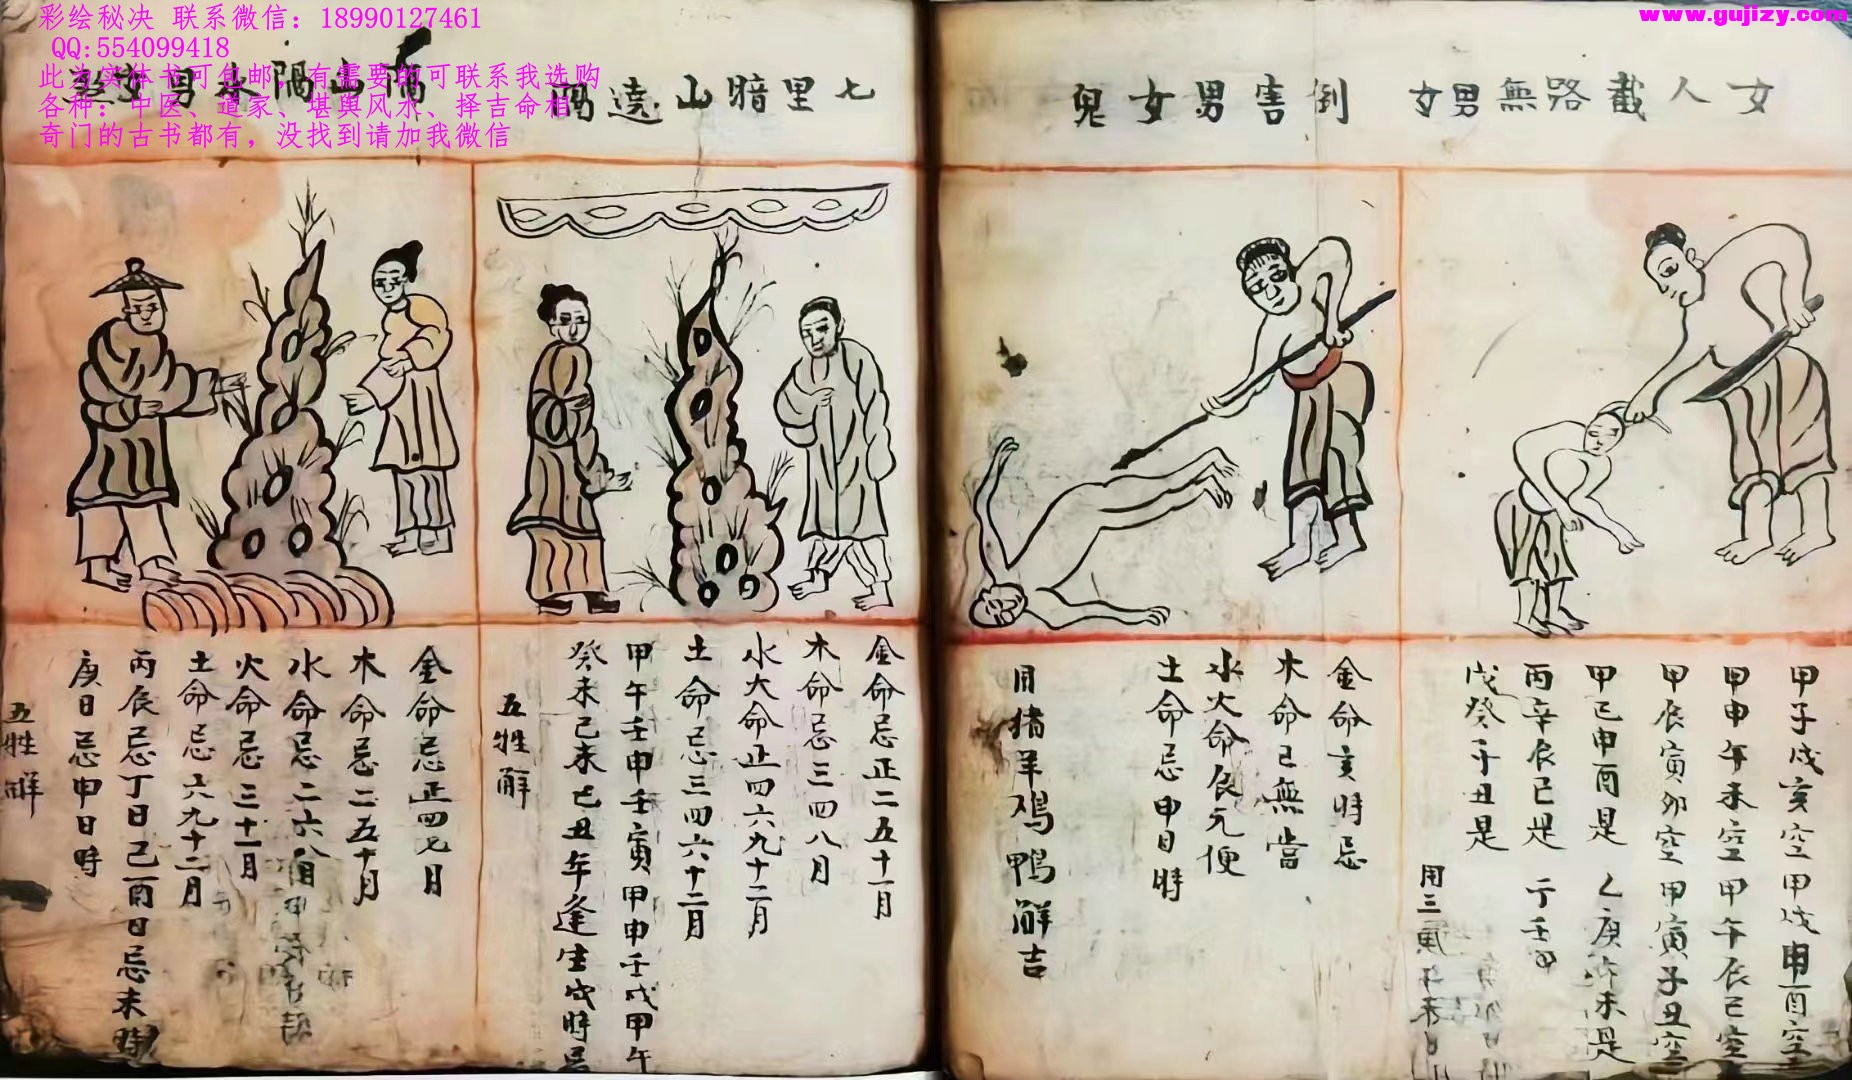 彩绘秘决 联系微信：18990127461
QQ:554099418
此为实体书可包邮，有需要的可联系我选购
各种：中医、道家、堪舆风水、择吉命相
奇门的古书都有，没找到请加我微信
www.gujizy.com
女人截路無男女
倒害男女鬼
七里暗山遶隔
山隔水男女
甲子戌亥空甲戌申酉空
甲申午未空甲午辰巳空
甲辰寅卯空甲寅子丑空
甲己申酉是 乙庚午未是
丙辛辰巳是 丁壬
戊癸子丑是
用三
金命亥時忌
木命已無當
水火命辰元便
土命忌申日時
用猪羊鸡鴨解吉
金命忌正二五十一月
木命忌三四八月
水火命正四六九十二月
土命忌三四六十二月
甲午壬申壬寅甲申壬戌甲午
癸未己未乙丑年逢生戌時忌
五牲解
金命忌正四七月
木命忌二五十月
水命忌二六八月
火命忌三十一月
土命忌六九十二月
丙辰忌丁日己酉日忌未時
庚日忌申日時
五牲解